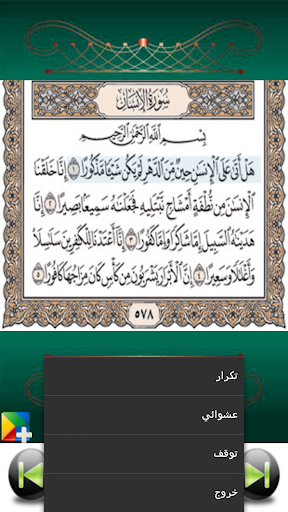 سورة الإنسان
بِسْمِ اللَّهِ الرَّحْمَٰنِ الرَّحِيمِ
هَلْ أَتَىٰ عَلَى الْإِنسَٰنِ حِينٌ مِّنَ الدَّهْرِ لَمْ يَكُن شَيْئًا مَّذْكُورًا ١ إِنَّا خَلَقْنَا
الْإِنسَٰنَ مِن نُّطْفَةٍ أَمْشَاجٍ نَّبْتَلِيهِ فَجَعَلْنَٰهُ سَمِيعًا بَصِيرًا ٢ إِنَّا
هَدَيْنَٰهُ السَّبِيلَ إِمَّا شَاكِرًا وَإِمَّا كَفُورًا ٣ إِنَّا أَعْتَدْنَا لِلْكَٰفِرِينَ سَلَٰسِلَا
وَأَغْلَٰلًا وَسَعِيرًا ٤ إِنَّ الْأَبْرَارَ يَشْرَبُونَ مِن كَأْسٍ كَانَ مِزَاجُهَا كَافُورًا ٥
٥٧٨
تكرار
عشوائي
توقف
خروج